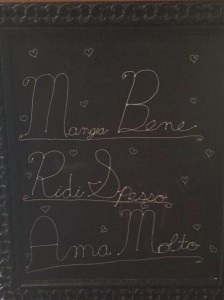 Mangia Bene
Ridi Spesso
Ama Molto